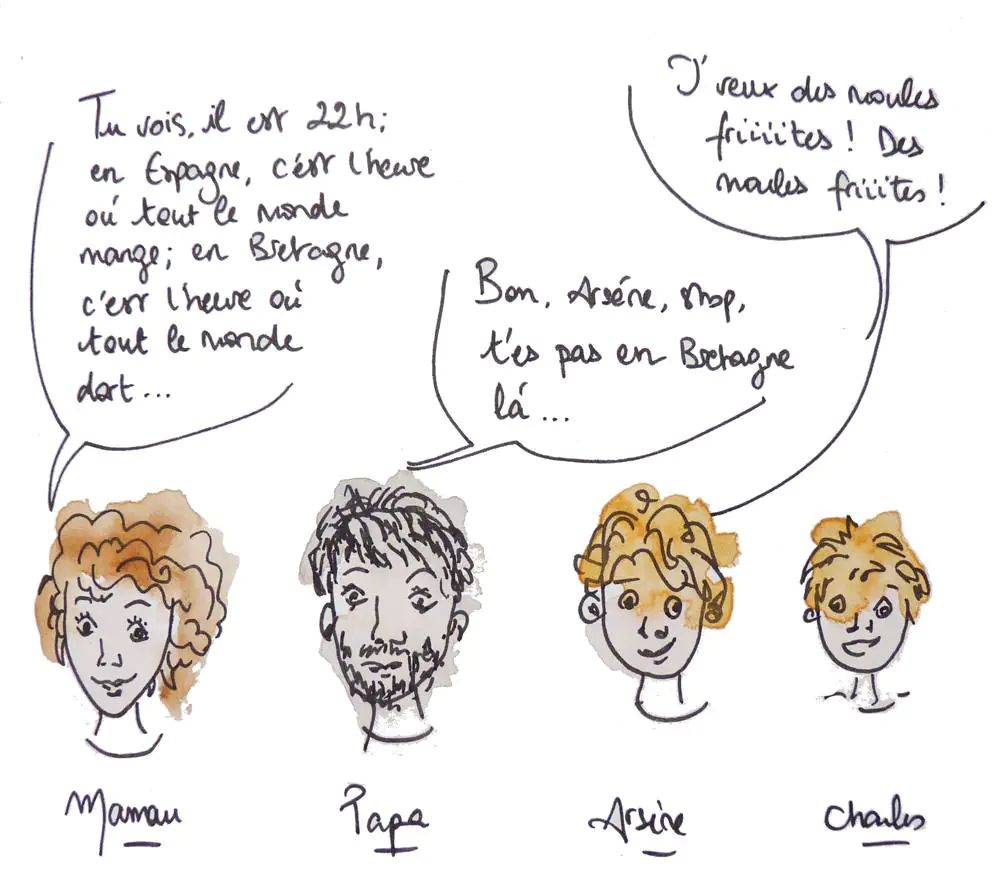 Tu vois, il est 22h;
en Espagne, c'est l'heure
où tout le monde
mange; en Bretagne,
c'est l'heure où
tout le monde
dort...
Bon, Arséne, stop,
t'es pas en Bretagne
là...
J'veux des moules
friiiites! Des
moules friiites!
Maman
Papa
Arsène
Charles